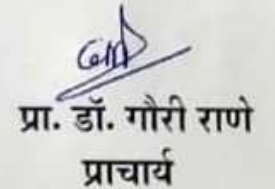 प्रा. डॉ. गौरी राणे
प्राचार्य